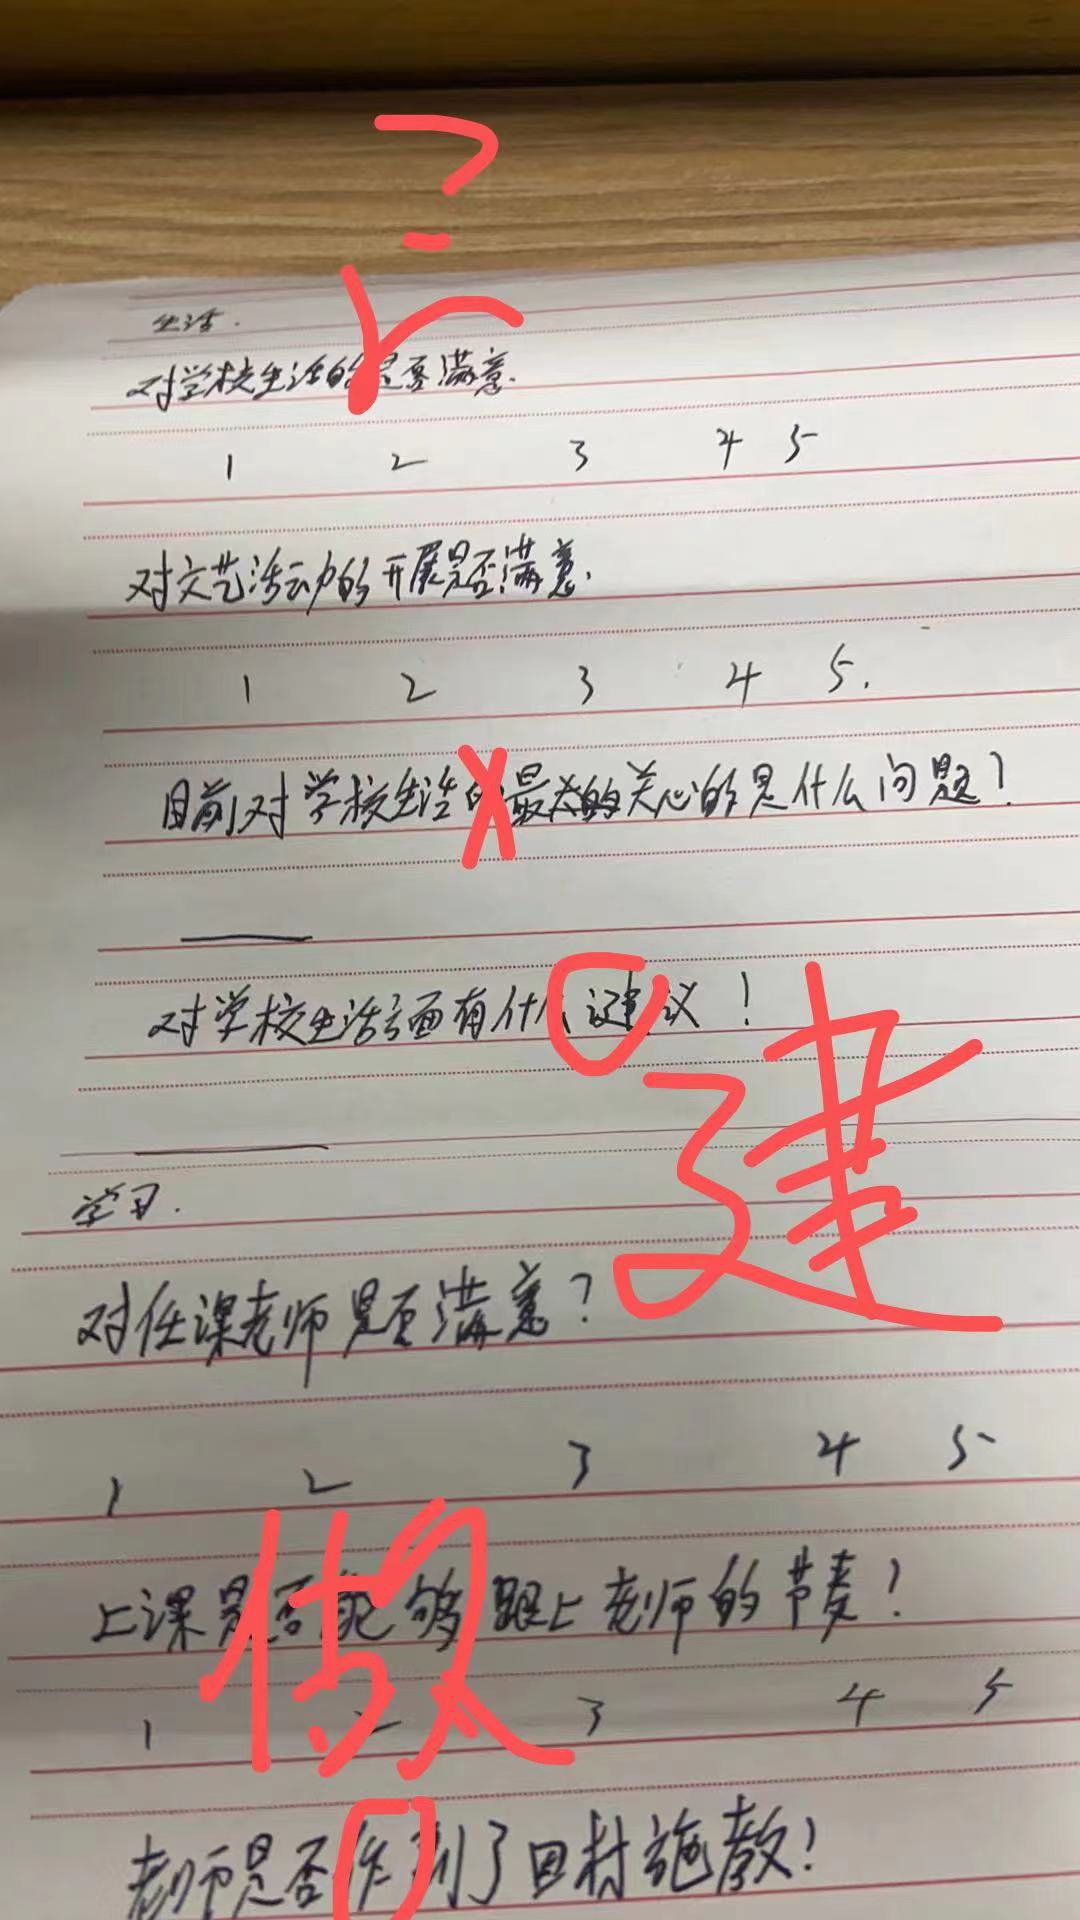 ?
生活.
对学校生活的是否满意.
1 2 3 4 5
对文艺活动的开展是否满意.
1 2 3 4 5.
目前对学校生活的最大的关心的是什么问题?
对学校生活方面有什么建议!
建
学习.
对任课老师是否满意?
1 2 3 4 5
做
上课是否能够跟上老师的节奏!
1 2 3 4 5
老师是否作到了因材施教!